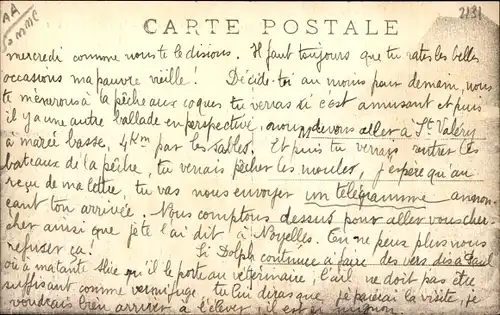 AA
Somme
2131
CARTE POSTALE
mercredi comme nous te le disions. Il faut toujours que tu rates les belles
occasions ma pauvre vieille! Décide-toi au moins pour demain, nous
te mènerons à la pêche aux coques tu verras si c'est amusant et puis
il y a une autre ballade en perspective, nous devons aller à St Valéry
à marée basse, 4 Km par les sables. Et puis tu verrais rentrer les
bateaux de la pêche, tu verrais pêcher les moules, j'espère qu'au
reçu de ma lettre, tu vas nous envoyer un télégramme annon-
çant ton arrivée. Nous comptons dessus pour aller vous cher-
cher ainsi que je te l'ai dit à Noyelles. Tu ne peux plus nous
refuser ça!
Si Dolph continue à faire des vers dis à Paul
ou à matante Alice qu'il le porte au vétérinaire, l'ail ne doit pas être
suffisant comme vermifuge tu lui diras que je paierai la visite, je
voudrais bien arriver à l'élever, il est si mignon